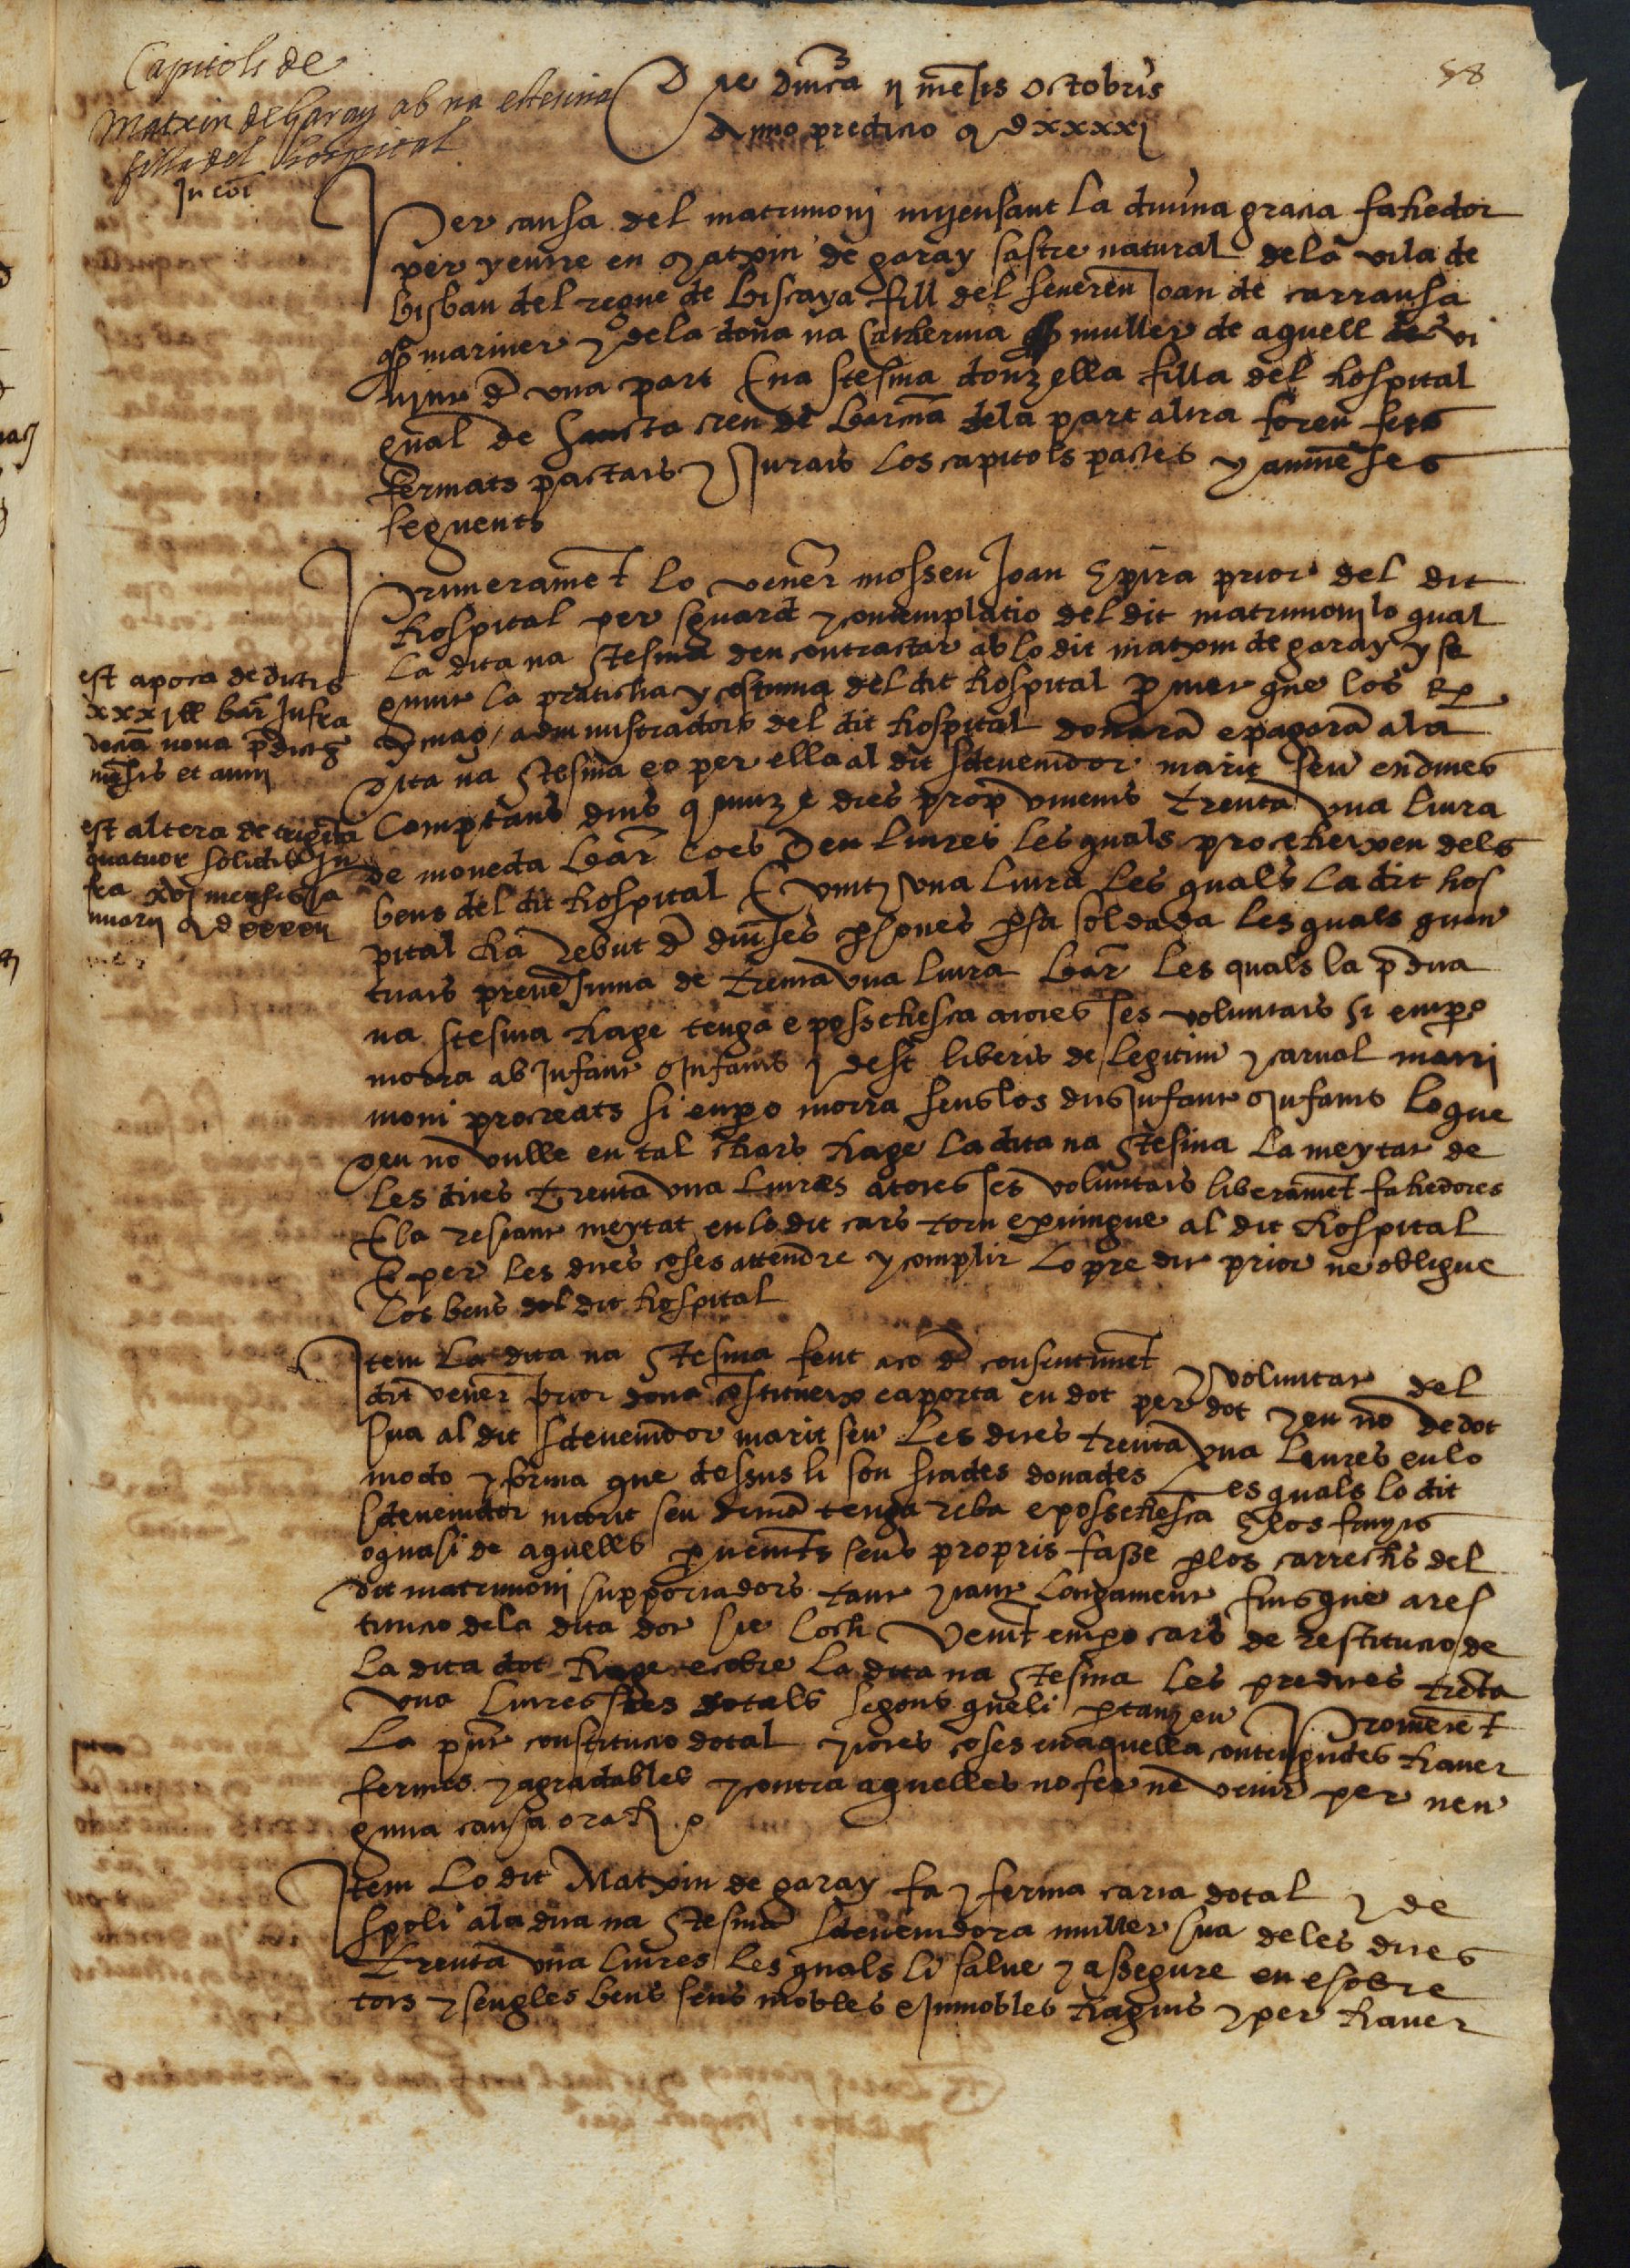 58
Capitols de
Matxin de Garay ab na estesina
filla del hospital
In coi
Die dnica ii mesis octobris
Anno predicto M D xxxxi
Per causa del matrimoni mijensant la diuina gracia fahedor
per y entre en Matxin de garay sastre natural dela vila de
bisbau del regne de biscaya fill del senyeren Joan de carransa
qo mariner y dela dona na Catherina muller de aquell vi
uint de una part E na stesina donzella filla del hospital
gnal de Sancta creu de barcna dela part altra foren fets
fermats pactats y Jurats los capitols pactes y auinenses
seguents
Primerament lo vener mossen Joan Spira prior del dit
hospital per sguard y contemplatio del dit matrimoni lo qual
la dita na stesina deu contractar ab lo dit matxin de garay y se
guint la praticha y costuma del dit hospital pmet que los Rt
y mag administradors del dit hospital donara e pagara ala
dita na stesina eo per ella al dit sdeuenidor marit seu endines
Comptans dins quinze dies prop vinents trenta vna liura
de moneda bar ço es deu liures les quals proceheixen dels
bens del dit hospital E vint y vna liura les quals la dit hos
pital ha rebut de diuses psones p sa soldada les quals quan
titats prenen suma de trenta vna liura bar les quals la pdita
na stesina hage tenga e possehesca a totes ses voluntats si empo
morra ab infant o infants y dest liberis de legitim y carnal matri
moni procreats si empo morra sens los dits infant o infants lo que
deu no vulle en tal cars hage la dita na stesina la meytat de
les dites trenta vna liures a totes ses voluntats liberament fahedores
E la restant meytat en lo dit cars torn e peruingue al dit hospital
E per les dites coses attendre y complir lo pre dit prior ne obligue
los bens del dit hospital
Item la dita na stesina fent aço de consentiment y voluntat del
dit vener prior dona constitueix e aporta en dot per dot y en nom de dot
sua al dit sdeuenidor marit seu les dites trenta vna liures en lo
modo y forma que dessus li son stades donades Les quals lo dit
sdeuenidor marit seu tenga reba e possehesca E los fruyts
o quasi de aquells pueints seus propris fasse p los carrechs del
dit matrimoni supportadors tant y tant longament fins que a res
titucio dela dita dot sie loch Venint empo cars de restitucio de
la dita dot hage e cobre la dita na stesina les predites trenta
vna liures sues dotals segons que li ptanyen Prometent
la pnt constitucio dotal y totes coses en aquella contengudes hauer
fermes y agradables y contra aquelles no fer ne venir per nen
guna causa o raho
Item lo dit Matxin de garay fa y ferma carta dotal y de
spoli ala dita na stesina sdeuenidora muller sua deles dites
trenta vna liures les quals li salue y assegure en e sobre
tots y sengles bens seus mobles e inmobles haguts y per hauer
est apoca de dictis
xxxi ll bar infra
decia nona pdictor
mesis et anni
est altera de triginta
quatuor solidis in
fra xvi mensis Ja
nuarii M D xxxxii